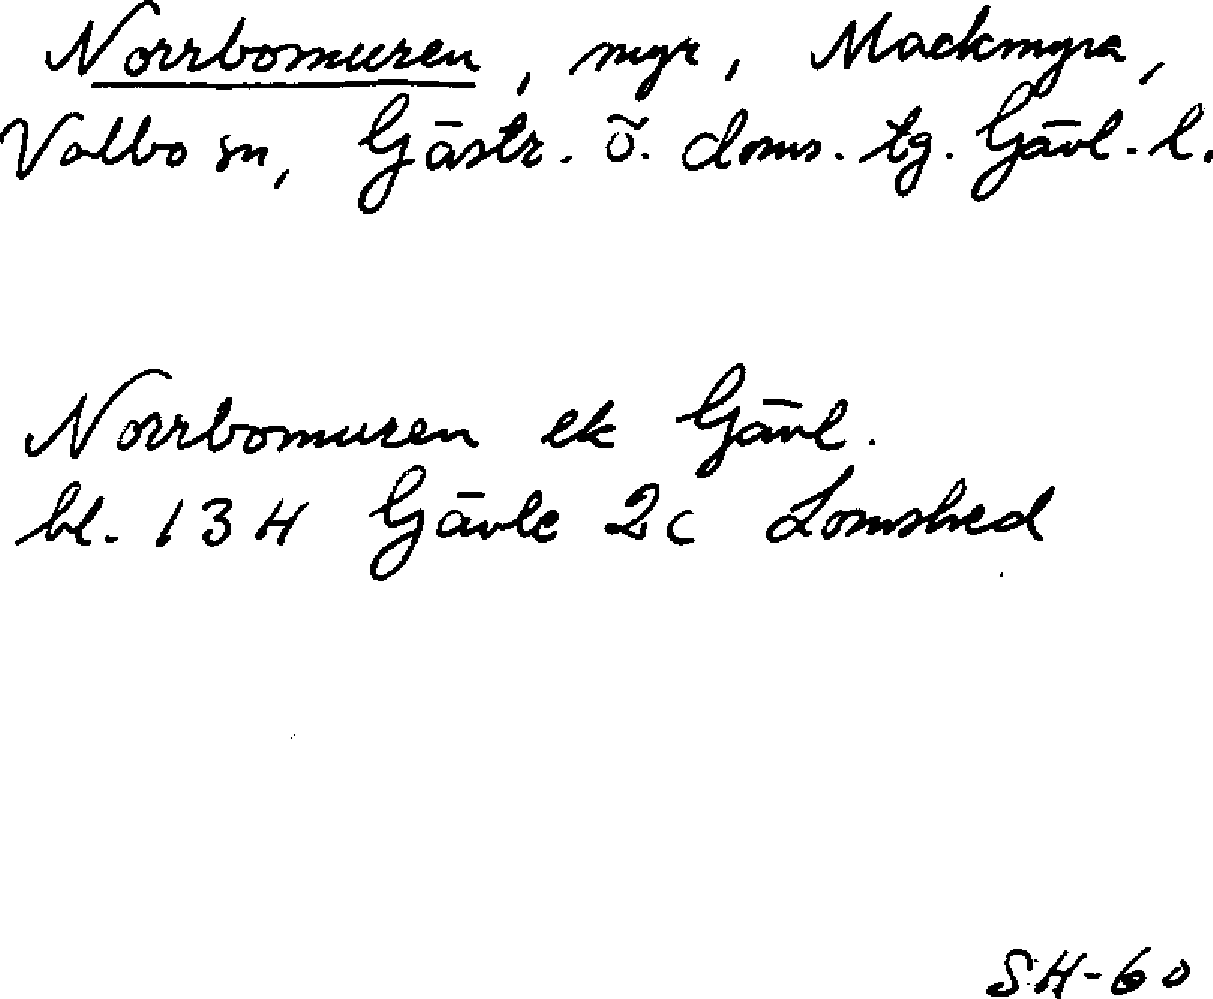 Norrbomuren, myr, Mackmyra,
Valbo sn, Gästr. ö. doms. tg. Gävl. l.
Norrbomuren ek Gävl.
bl. 13H Gävle 2c Lomshed
SH-60